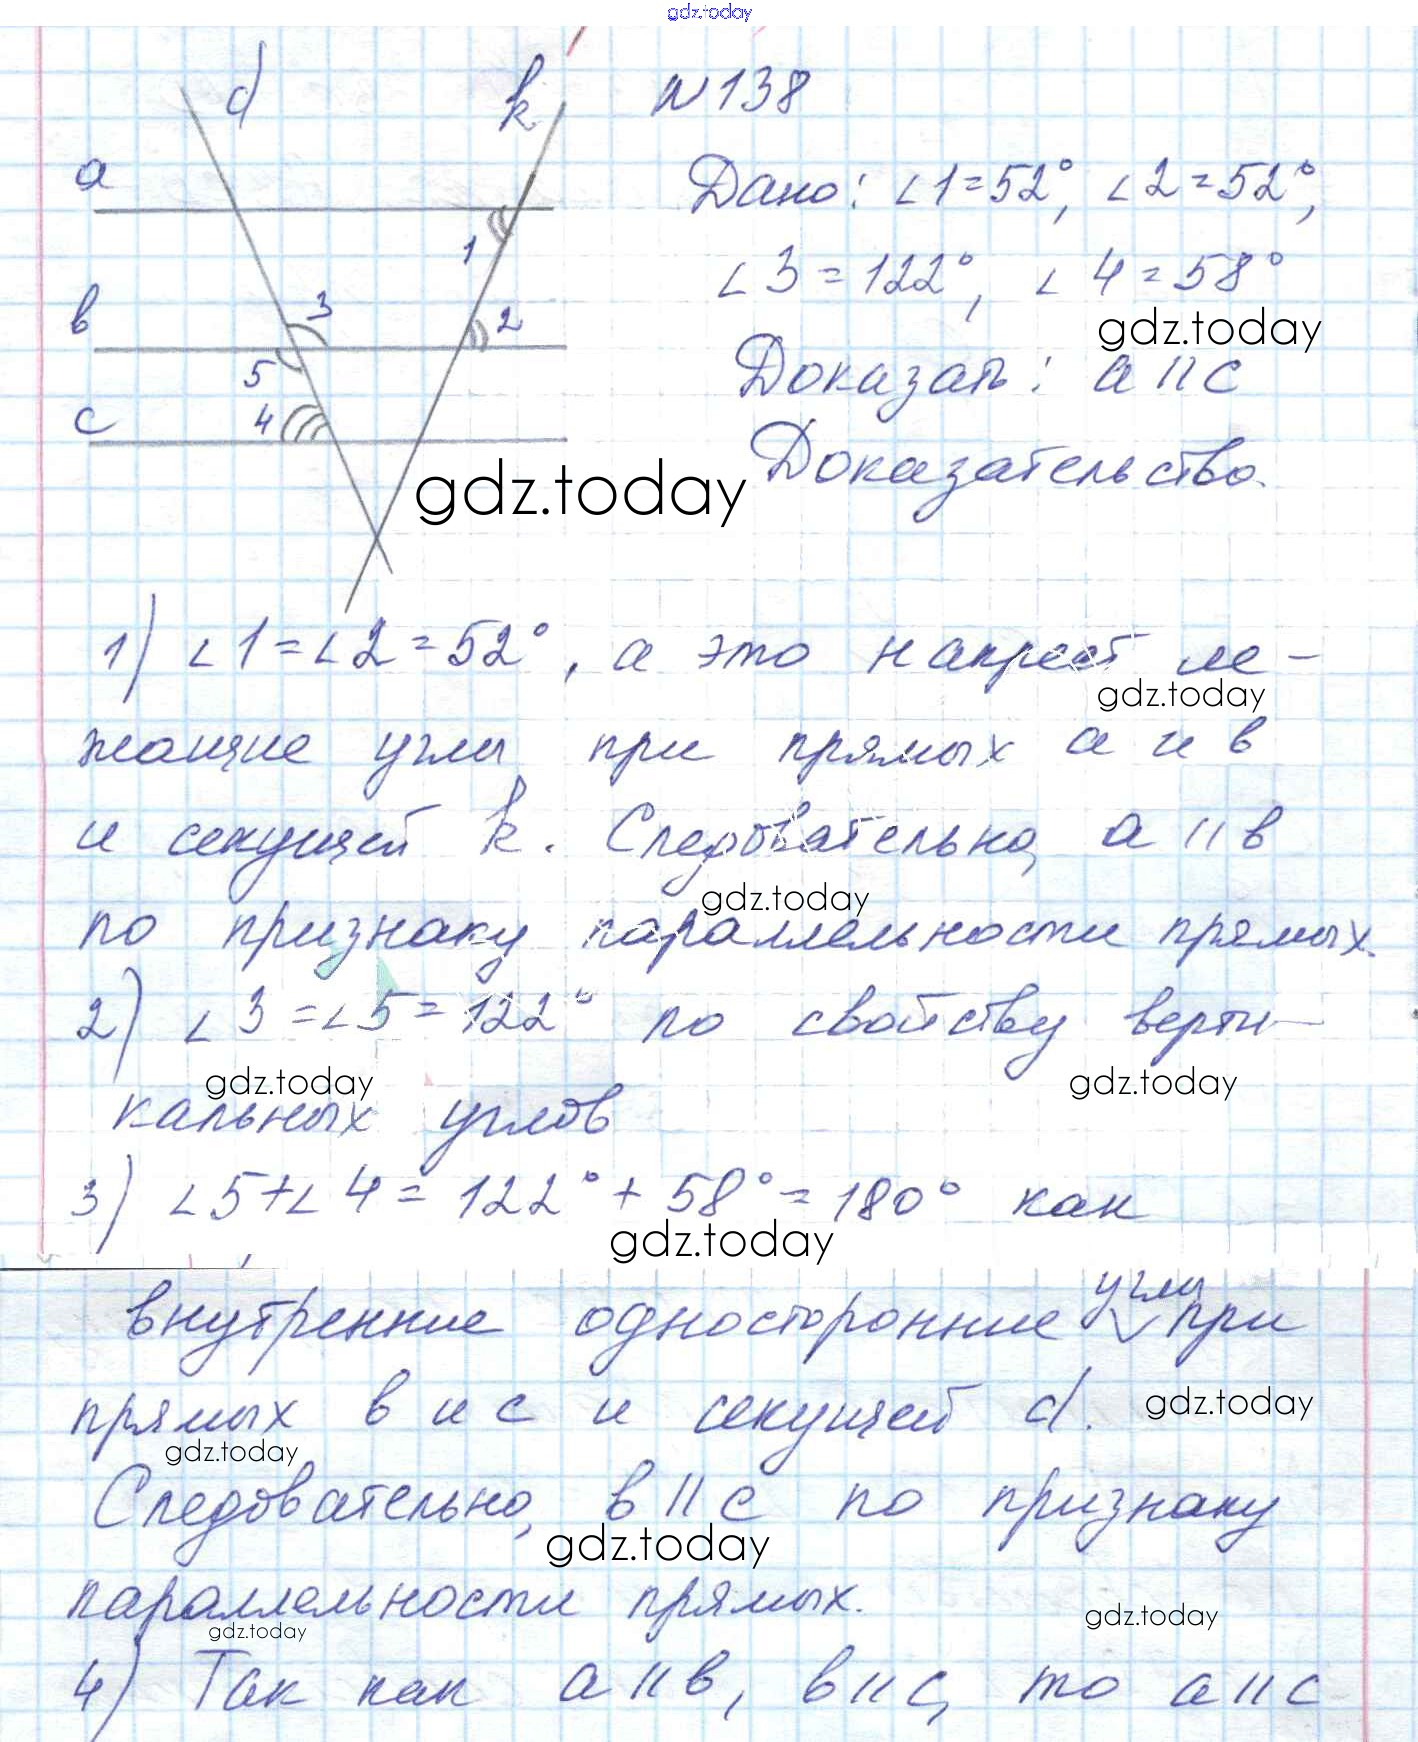 gdz.today
d k №138
a Дано: ∠1=52°, ∠2=52°,
1 ∠3=122°, ∠4=58°
gdz.today
в 3 2
5 Доказать: a || c
c 4 Доказательство.
gdz.today
1) ∠1=∠2=52°, а это накрест ле-
gdz.today
жащие углы при прямых a и в
и секущей k. Следовательно, a || в
gdz.today
по признаку параллельности прямых.
2) ∠3=∠5=122° по свойству верти-
gdz.today gdz.today
кальных углов
3) ∠5+∠4=122°+58°=180° как
gdz.today
углы
внутренние односторонние при
прямых в и c и секущей d. gdz.today
gdz.today
Следовательно, в || c по признаку
gdz.today
параллельности прямых.
gdz.today gdz.today
4) Так как a || в, в || c, то a || c